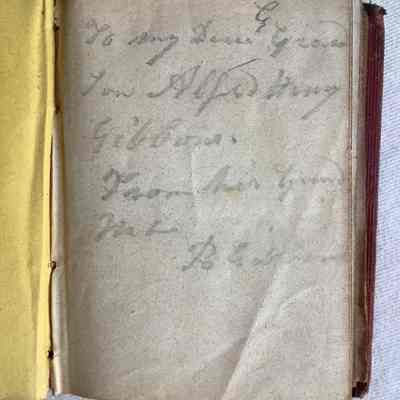 G
To my Dear Grand
Son Alfred Henry
Gibbons.
From his Grand